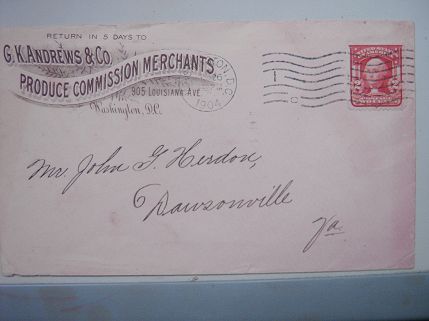 RETURN IN 5 DAYS TO
G.K. ANDREWS & CO.
PRODUCE COMMISSION MERCHANTS
905 LOUISIANA AVE
Washington, D.C.
D.C.
26
1904
Mr. John G. Herdon,
Dawsonville
Va.